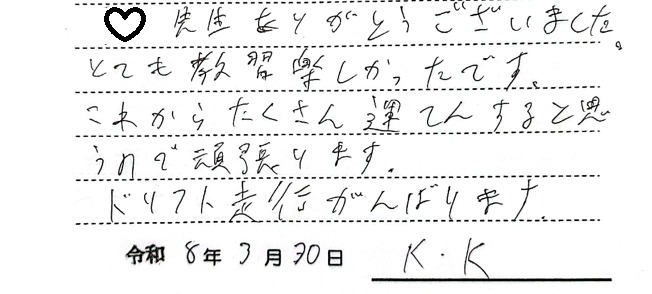 ♡ 先生ありがとうございました。
とても教習楽しかったです。
これからたくさん運てんすると思
うので頑張ります。
ドリフト走行がんばります。
令和 8年 3月 30日 K.K